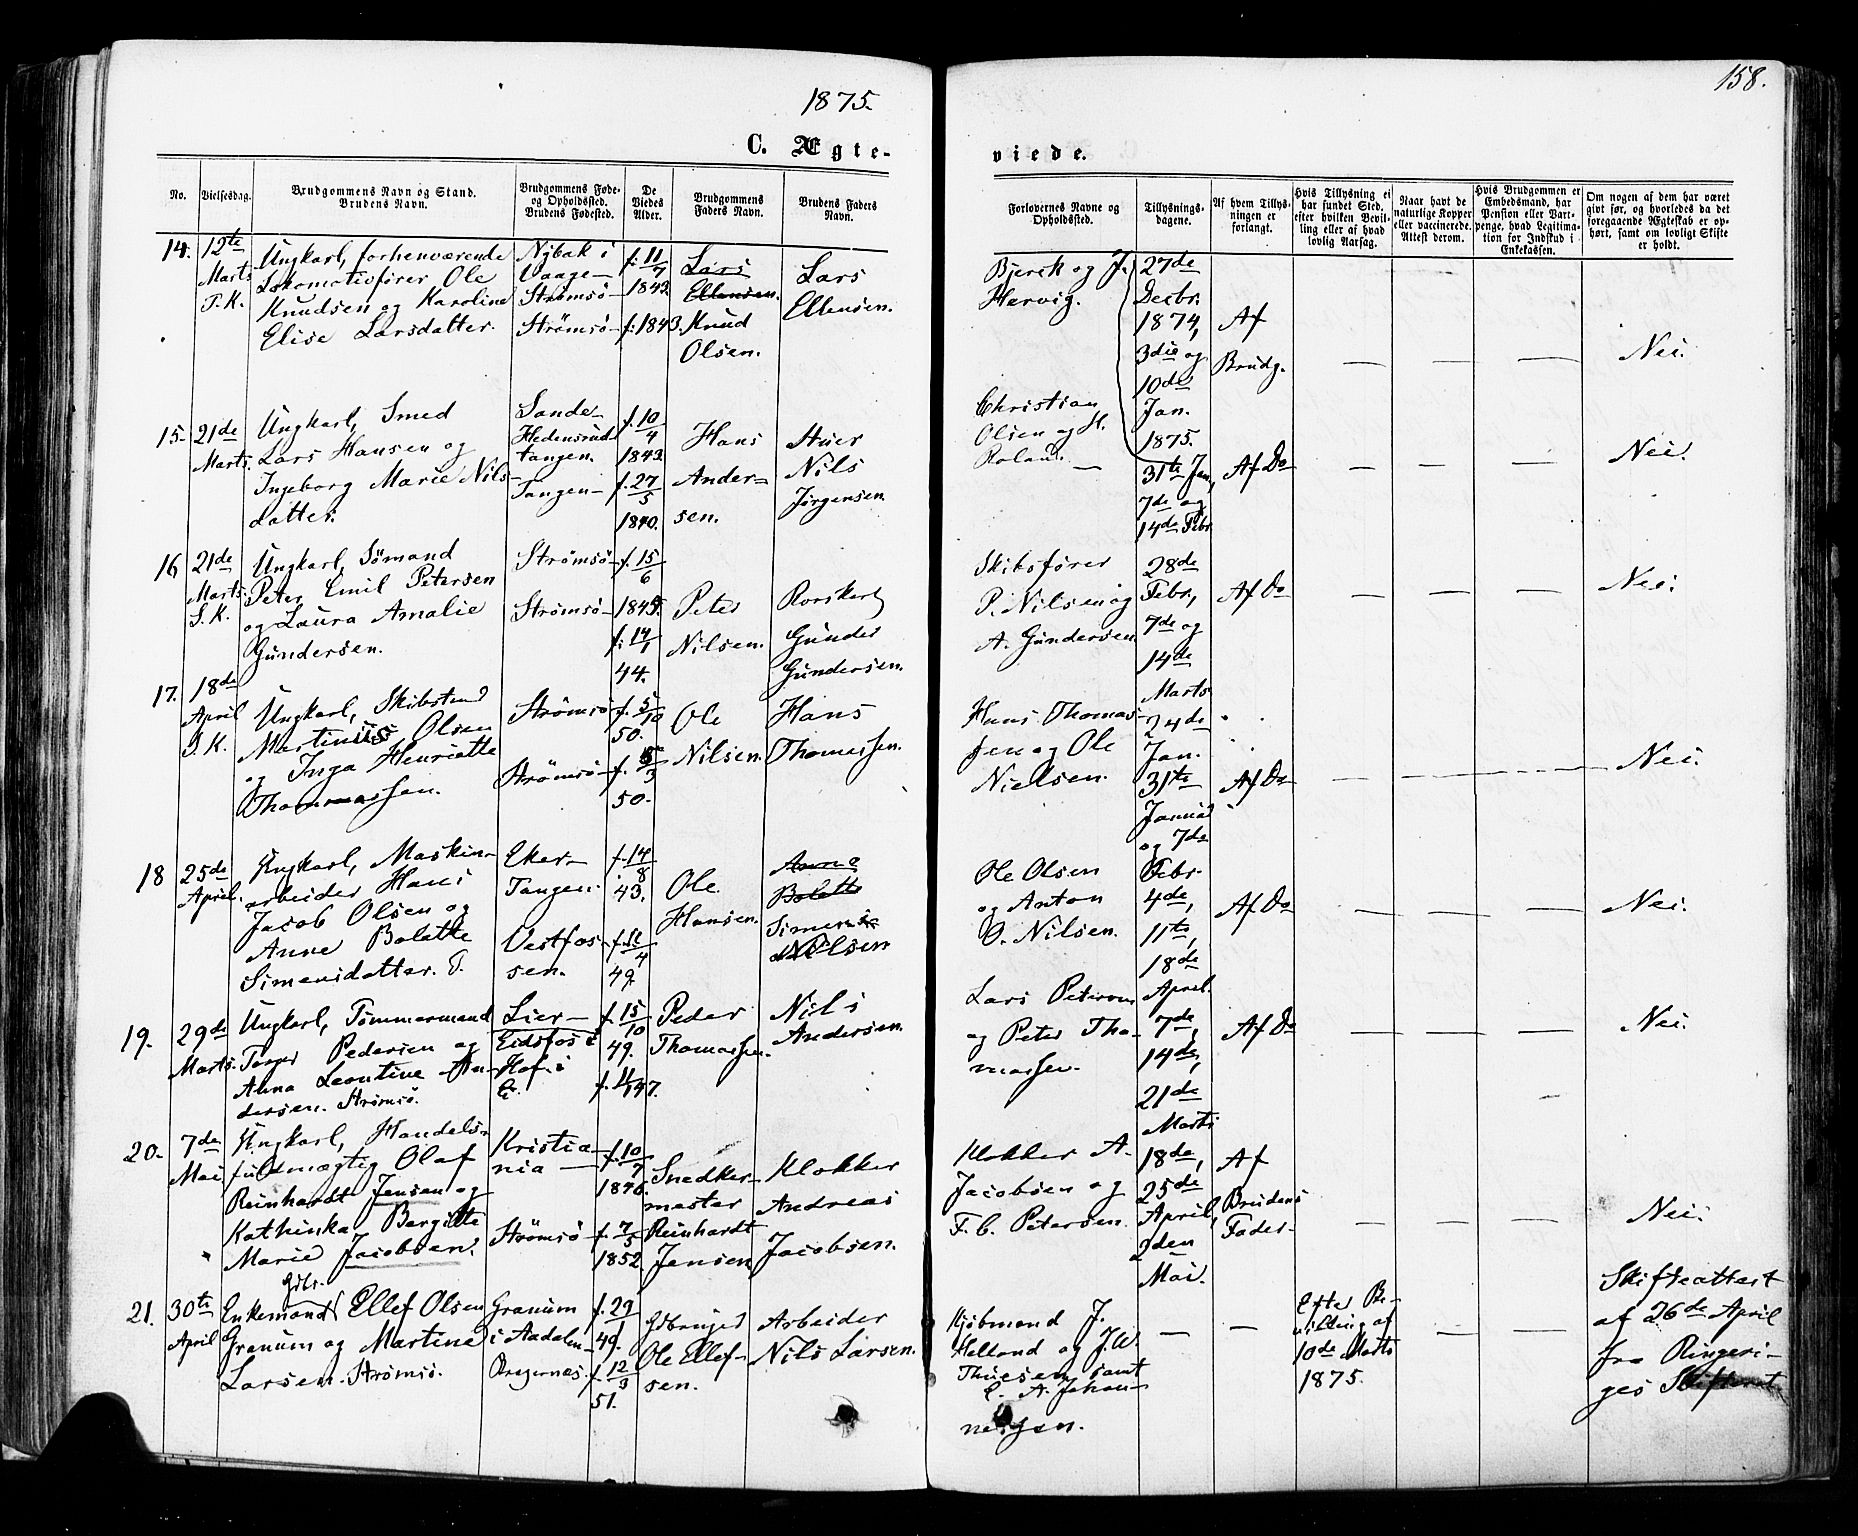 1875.
158.
C. Ægte-
viede.
No.
Vielsesdag.
Brudgommens Navn og Stand.
Brudens Navn.
Brudgommens Føde-
og Opholdssted.
Brudens Fødested.
De
Viedes
Alder.
Brudgommens
Faders Navn.
Brudens Faders
Navn.
Forlovernes Navne og
Opholdssted.
Tillysnings-
dagene.
Af hvem Tillys-
ningen er
forlangt.
Hvis Tillysning ei
har fundet Sted,
efter hvilken Bevil-
ling eller af hvad
lovlig Aarsag.
Naar havt de
naturlige Kopper
eller vaccinerede.
Attest derom.
Hvis Brudgommen er
Embedsmand, har
Pension eller Vart-
penge, hvad Legitima-
tion for Indskud i
Enkekassen.
Om nogen af dem har været
gift før, og hvorledes da det
foregaaende Ægteskab er op-
hørt, samt om lovligt Skifte
er holdt.
14.
12te
Marts
T.K.
Ungkarl, forhenværende
Lokomotivfører Ole
Knudsen og Karoline
Elise Larsdatter.
Nybak i
Vaage-
Strømsø-
Strømsø-
f. 11/7
1843.
f. 1843.
Lars
Ellensen.
Knud
Olsen.
Lars
Ellensen.
Bjerck og J.
Hervig.
27de
Decbr.
1874,
3die og
10de
Jan.
1875.
Af
Brudg.
—
—
—
Nei.
15-
21de
Marts.
Ungkarl, Smed
Lars Hansen og
Ingeborg Marie Nils-
datter.
Sande-
Hedensrud-
tangen.
Tangen-
f. 10/4
1843.
f. 27/5
1840.
Hans
Ander-
sen.
Nils
Jørgensen
Christian
Olsen og H.
31te Jan,
7de og
14de Febr
Af Do
—
—
—
Nei.
16
21de
Marts.
S.K.
Ungkarl, Sømand
Peter Emil Petersen
og Laura Amalie
Gundersen.
Strømsø-
Strømsø-
f. 15/6
1845.
f. 14/1
44.
Peter
Nilsen.
Gunder
Gundersen.
Skibsfører
P. Nilsen og
A. Gundersen
28de
Febr,
7de og
14de
Marts
Af Do
—
—
—
Nei.
17.
18de
April
S.K.
Ungkarl, Skibstmd
Martinius Olsen
og Inga Henriette
Thommassen.
Strømsø
Strømsø-
f. 5/10
50.
50.
Ole
Nilsen.
Hans
Thomassen.
Hans Thomas-
sen og Ole
Nielsen.
24de
Jan.
31te
Januar
og 7de
Febr.
Af Do
—
—
—
Nei.
18
25de
April.
Ungkarl, Maskin-
arbeider Hans
Jacob Olsen og
Anne Bolette
Simensdatter. T.
Eker-
Tangen.
Vestfos-
sen.
f. 14/8
43.
f. 11/4
49.
Ole
Hansen.
Anne
Bolette
Simen
Nilsen
Ole Olsen
og Anton
O. Nilsen.
4de,
11te,
18de
April.
Af Do
—
—
—
Nei.
19.
29de
Marts.
Ungkarl, Tømmermand
Pedersen og
Anna Leontine An-
dersen. Strømsø.
Lier-
Eidsfos i
Hof i
f. 15/10
49.
Peder
Thomassen.
Nils
Andersen.
Lars Peterson
og Peter Tho-
massen.
7de,
14de,
21de
Marts
Af Do
—
—
—
Nei.
20.
7de
Mai
Ungkarl, Handels-
fuldmægtig Olaf
Reinhardt Jensen og
Kathinka Bergitte
Marie Jacobsen.
Kristia-
nia —
Strømsø-
f. 10/7
1846.
f. 7/5
1852
Snedker-
mester
Reinhardt
Jensen
Klokker
Andreas
Jacobsen.
Klokker A.
Jacobsen og
F. C. Petersen.
18de,
25de
April,
2den
Mai.
Af
Brudens
Fader-
—
—
—
Nei.
21.
30te
April
Gdbr.
Enkemand Ellef Olsen
Granum og Martine
Larsen. Strømsø.
Granum
i Aadalen-
Bragernæs.
f. 29/1
49.
f. 12/3
51.
Gdbruger
Ole Ellef-
sen.
Arbeider
Nils Larsen.
Kjøbmand J.
Helland og J.W.
Thuesen samt
C. A. Johan-
nessen.
—
—
Efter Be-
villing af
10de Marts
1875.
—
—
Skifteattest
af 26de April
fra Ringeri-
ges Skifteret